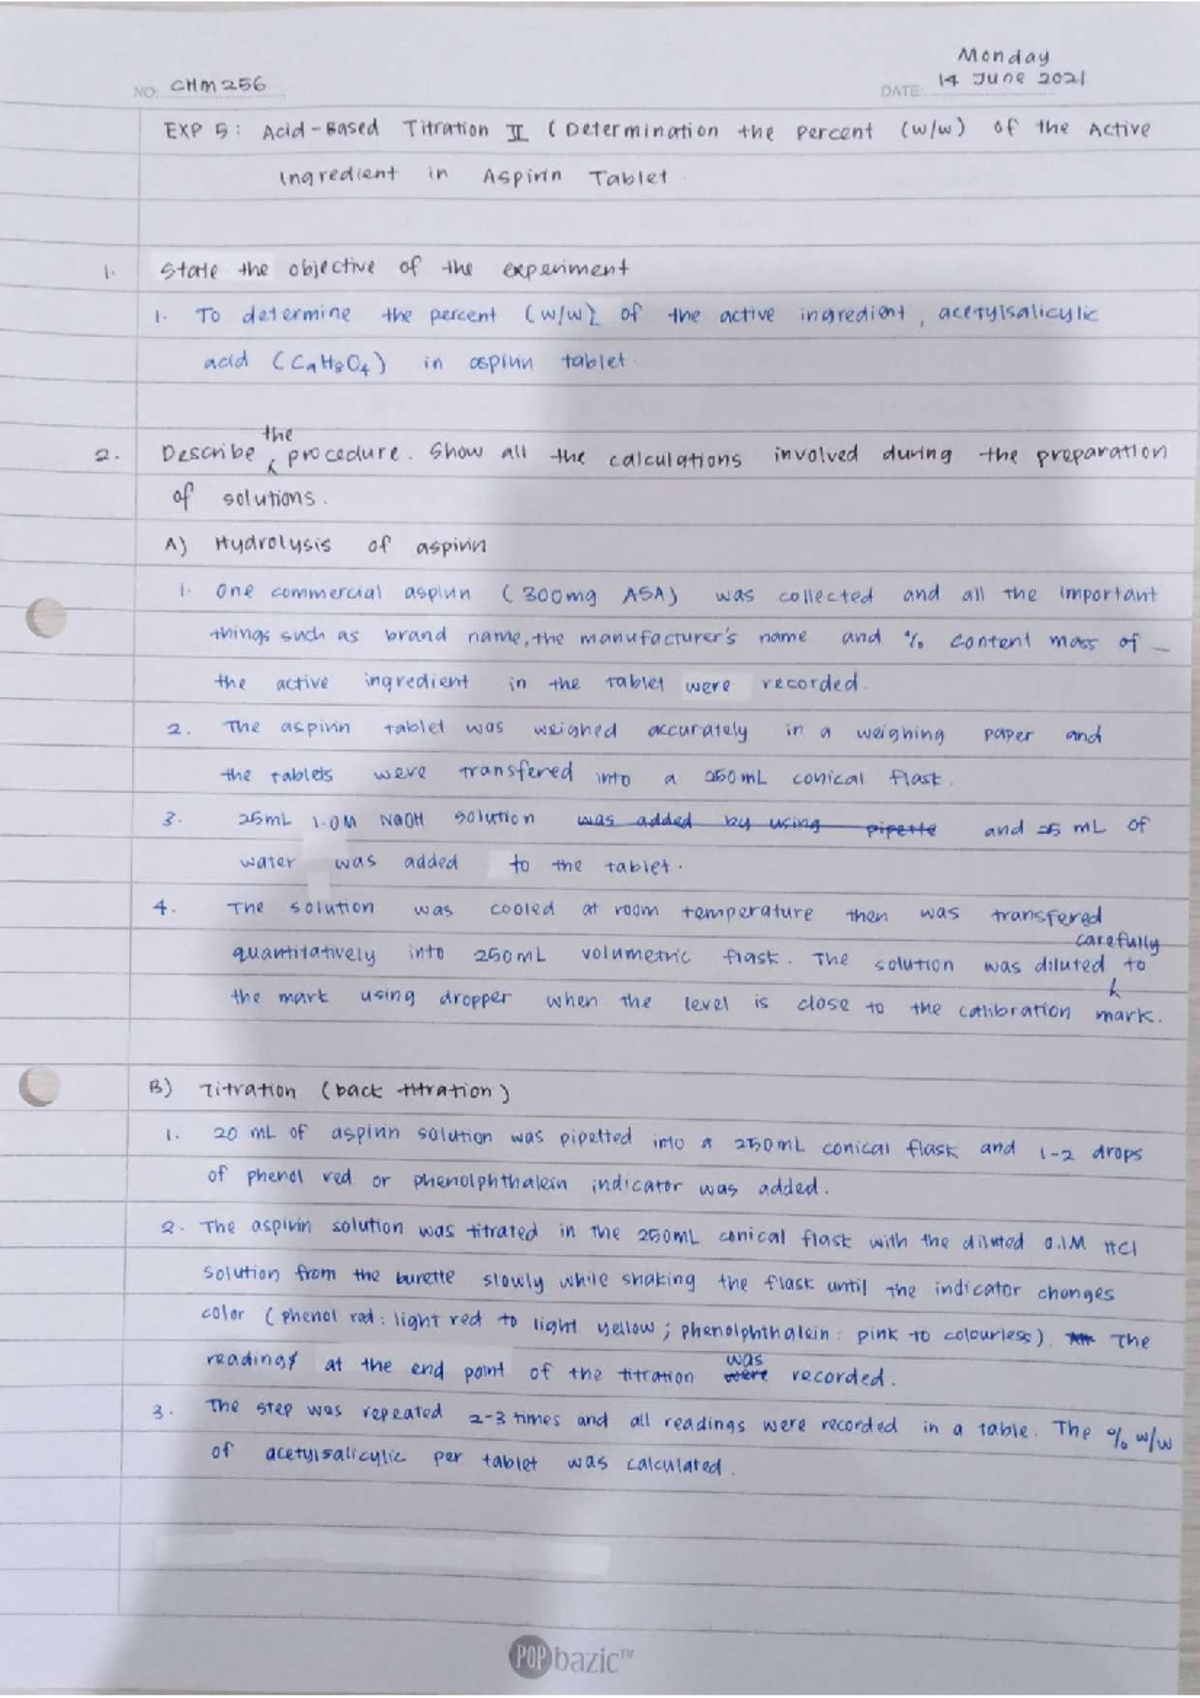 Monday
NO. CHM256
DATE 14 June 2021
EXP 5: Acid-Based Titration II (Determination the Percent (w/w) of the Active
Ingredient in Aspirin Tablet.
1. State the objective of the experiment
1. To determine the percent (w/w) of the active ingredient, acetylsalicylic
acid (C9H8O4) in aspirin tablet.
the
2. Describe ⁁ procedure. Show all the calculations involved during the preparation
of solutions.
A) Hydrolysis of aspirin
1. One commercial aspirin (300mg ASA) was collected and all the important
things such as brand name, the manufacturer's name and % content mass of –
the active ingredient in the tablet were recorded.
2. The aspirin tablet was weighed accurately in a weighing paper and
the tablets were transfered into a 250mL conical flask.
3. 25mL 1.0M NaOH solution was added by using pipette and 25 mL of
water was added to the tablet.
4. The solution was cooled at room temperature then was transfered
carefully
quantitatively into 250mL volumetric flask. The solution was diluted ⁁ to
the mark using dropper when the level is close to the calibration mark.
B) Titration (back titration)
1. 20 mL of aspirin solution was pipetted into a 250mL conical flask and 1-2 drops
of phenol red or phenolphthalein indicator was added.
2. The aspirin solution was titrated in the 250mL conical flask with the diluted 0.1M HCl
solution from the burette slowly while shaking the flask until the indicator changes
color (phenol red: light red to light yellow; phenolphthalein: pink to colourless). The
was
readings at the end point of the titration were recorded.
3. The step was repeated 2-3 times and all readings were recorded in a table. The % w/w
of acetylsalicylic per tablet was calculated.
POP bazic™